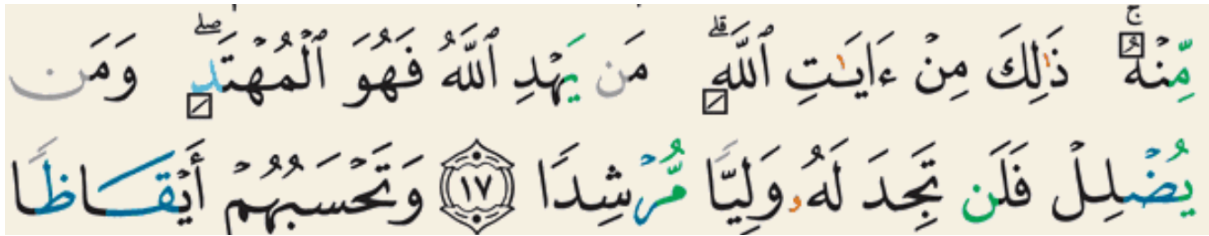 مِّنْهُۚ ذَٰلِكَ مِنْ ءَايَٰتِ ٱللَّهِۗ مَن يَهْدِ ٱللَّهُ فَهُوَ ٱلْمُهْتَدِۖ وَمَن
يُضْلِلْ فَلَن تَجِدَ لَهُۥ وَلِيًّا مُّرْشِدًا ١٧ وَتَحْسَبُهُمْ أَيْقَاظًا